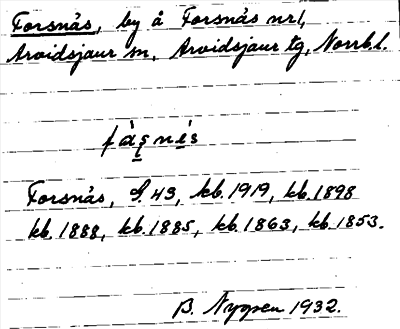 Forsnäs, by å Forsnäs nr 1,
Arvidsjaur sn, Arvidsjaur tg, Norrb.l.
Forsnäs, G. 43, kb. 1919, kb. 1898
kb. 1888, kb. 1885, kb. 1863, kb. 1853.
B. Nygren 1932.